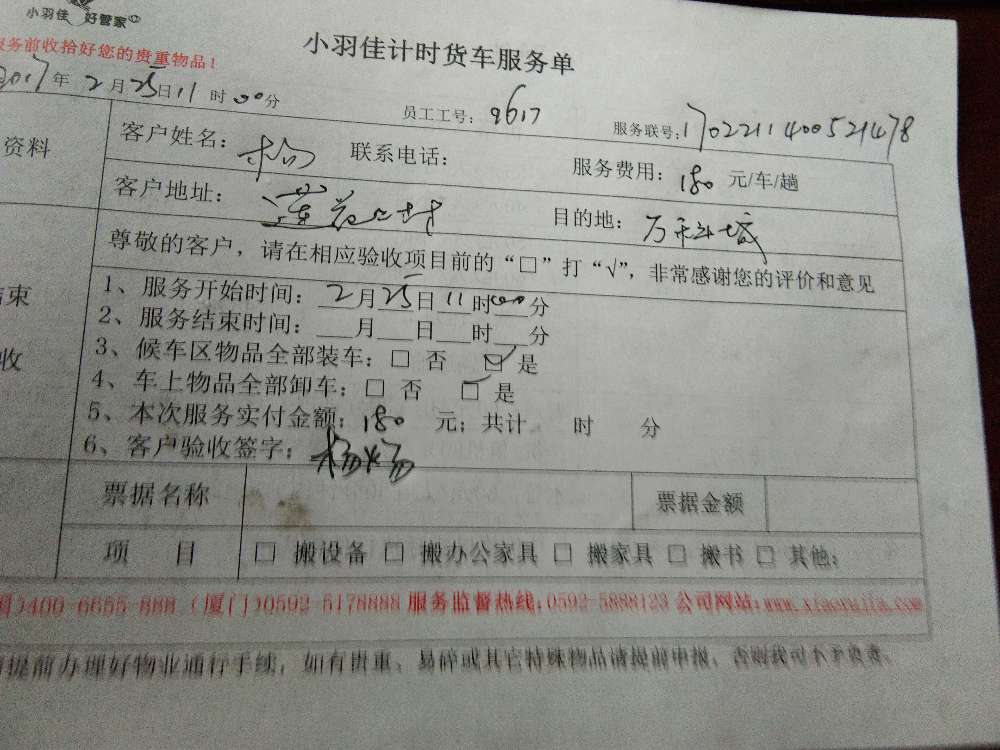 小羽佳 好管家
服务前收拾好您的贵重物品！
小羽佳计时货车服务单
2017年2月25日11时00分
员工工号：9617
服务联号：170221140052147​8
资料
客户姓名：杨 联系电话： 服务费用：180元/车/趟
客户地址：莲花 村 目的地：万科城
尊敬的客户，请在相应验收项目前的“□”打“√”，非常感谢您的评价和意见
1、服务开始时间：2月25日11时00分
结束
2、服务结束时间：___月___日___时___分
3、候车区物品全部装车：□ 否 ☑ 是
收
4、车上物品全部卸车：□ 否 ☑ 是
5、本次服务实付金额：180 元；共计 时 分
6、客户验收签字：杨炀
票据名称 票据金额
项 目 □ 搬设备 □ 搬办公家具 □ 搬家具 □ 搬书 □ 其他：
)400-6655-888（厦门)0592-5178888 服务监督热线：0592-5888123 公司网站：www.xiaoyujia.com
提前办理好物业通行手续，如有贵重、易碎或其它特殊物品请提前申报，否则我司不予负责。